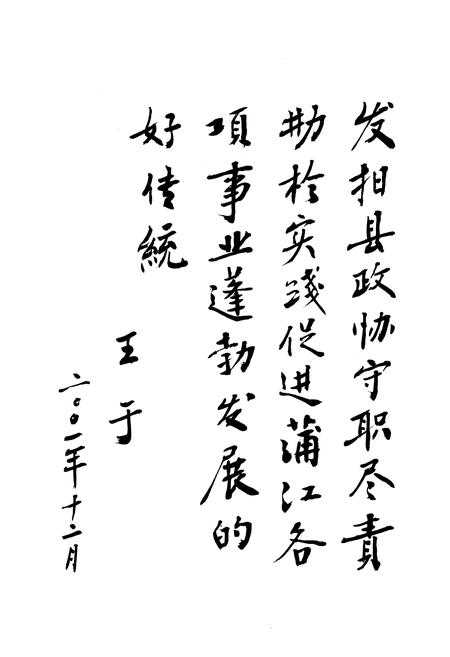 发扬县政协守职尽责
勤于实践促进蒲江各
项事业蓬勃发展的
好传统
王于
二〇〇一年十二月